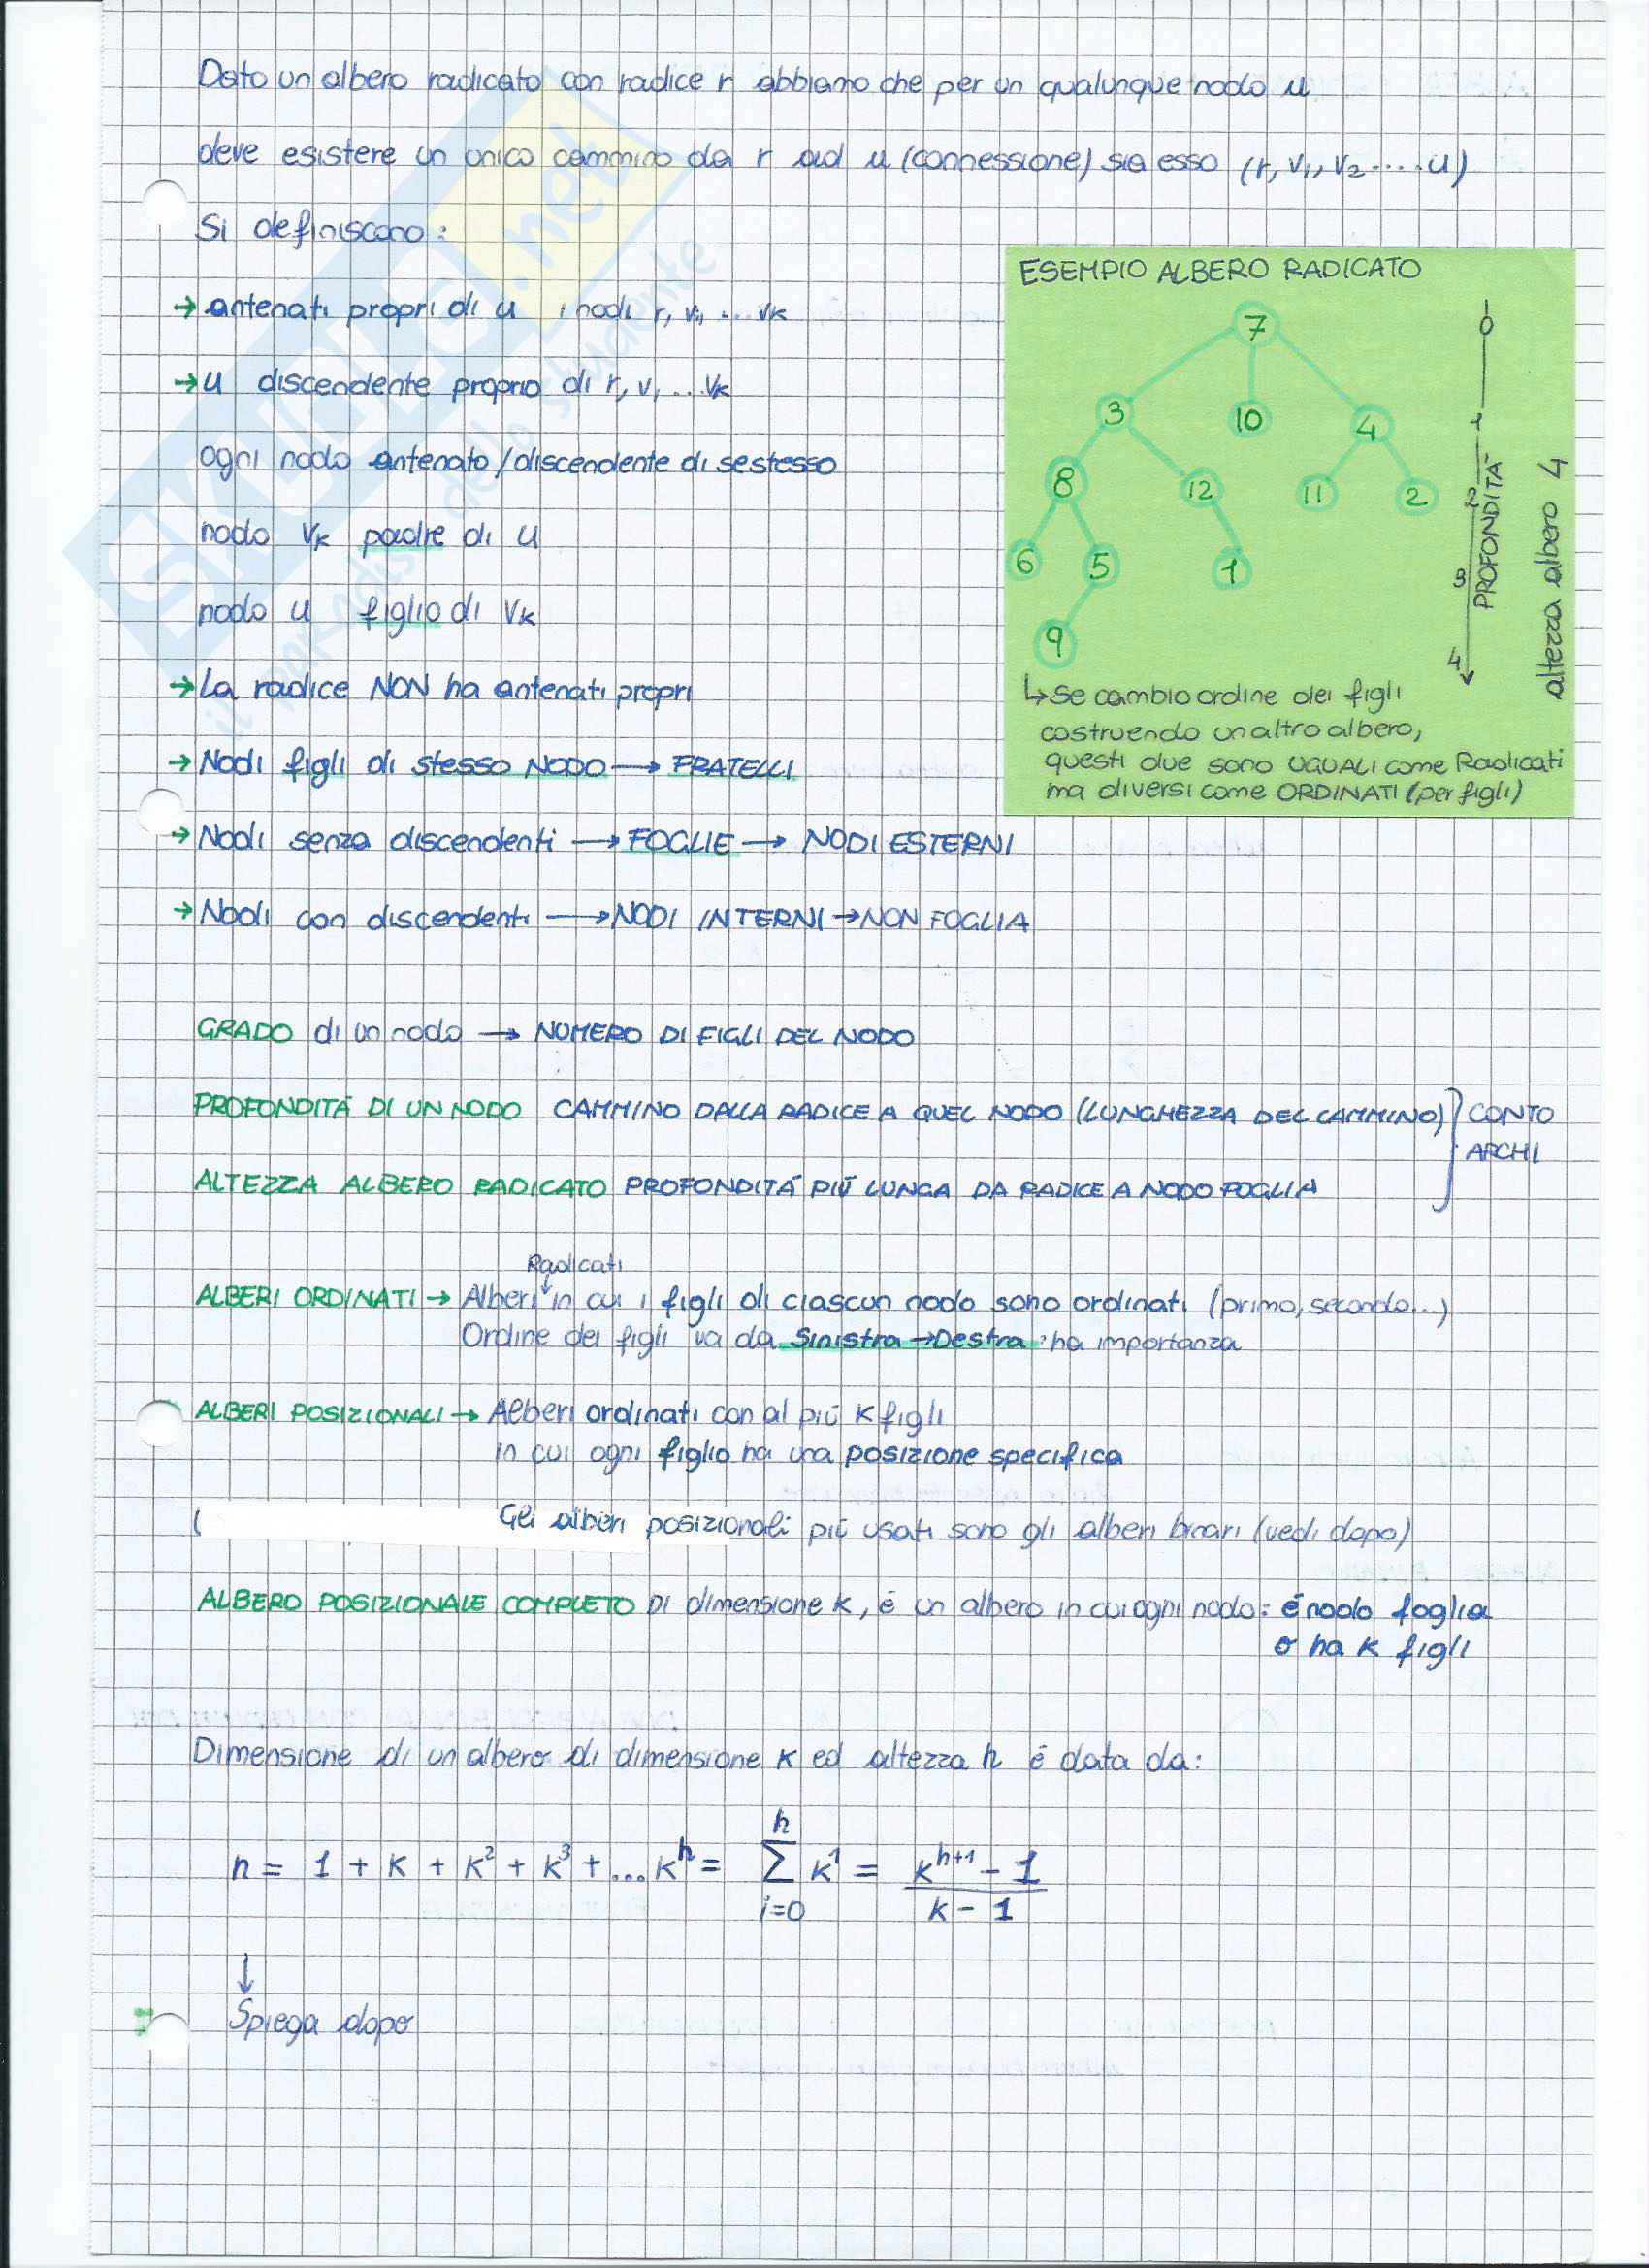 Dato un albero radicato con radice r abbiamo che per un qualunque nodo u
deve esistere un unico cammino da r ad u (connessione) sia esso (r, v1, v2 .... u)
Si definiscono:
→ antenati propri di u i nodi r, v1, ... vk
→ u discendente proprio di r, v1 ... vk
ogni nodo antenato/discendente di sestesso
nodo vk padre di u
nodo u figlio di vk
→ La radice NON ha antenati propri
→ Nodi figli di stesso NODO → FRATELLI
→ Nodi senza discendenti → FOGLIE → NODI ESTERNI
→ Nodi con discendenti → NODI INTERNI → NON FOGLIA
ESEMPIO ALBERO RADICATO
7
3 10 4
8 12 11 2
6 5 1
9
0
1
2
3
4
PROFONDITÀ
altezza albero 4
↳ Se cambio ordine dei figli
costruendo un altro albero,
questi due sono UGUALI come Radicati
ma diversi come ORDINATI (per figli)
GRADO di un nodo → NUMERO DI FIGLI DEL NODO
PROFONDITÁ DI UN NODO CAMMINO DALLA RADICE A QUEL NODO (LUNGHEZZA DEL CAMMINO)
ALTEZZA ALBERO RADICATO PROFONDITÁ PIÚ LUNGA DA RADICE A NODO FOGLIA
} CONTO
ARCHI
Radicati
ALBERI ORDINATI → Alberi in cui i figli di ciascun nodo sono ordinati (primo, secondo...)
Ordine dei figli va da Sinistra → Destra : ha importanza
ALBERI POSIZIONALI → Alberi ordinati con al più k figli
in cui ogni figlio ha una posizione specifica
( Gli alberi posizionali più usati sono gli alberi binari (vedi dopo)
ALBERO POSIZIONALE COMPLETO DI dimensione k, é un albero in cui ogni nodo: é nodo foglia
o ha k figli
Dimensione di un albero di dimensione k ed altezza h é data da:
n = 1 + k + k² + k³ + ... k^h = ∑_{i=0}^{h} k^i = (k^{h+1} - 1) / (k - 1)
↓
Spiega dopo
SKUOLA.net
il paradiso dello studente